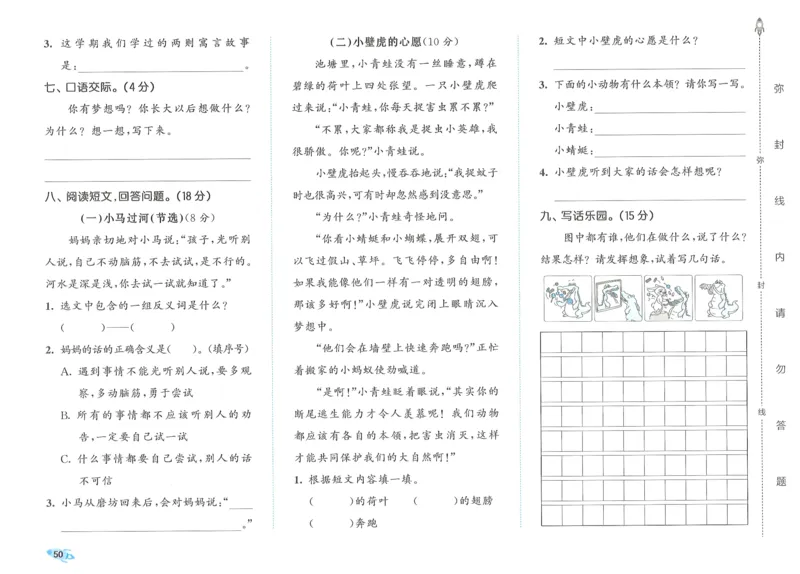 3. 这学期我们学过的两则寓言故事
是：。
七、口语交际。(4分)
你有梦想吗？你长大以后想做什么？
为什么？想一想，写下来。
八、阅读短文，回答问题。(18分)
(一)小马过河(节选)(8分)
妈妈亲切地对小马说：“孩子，光听别
人说，自己不动脑筋，不去试试，是不行的。
河水是深是浅，你去试一试就知道了。”
1. 选文中包含的一组反义词是什么？
(    )——(    )
2. 妈妈的话的正确含义是(    )。(填序号)
A. 遇到事情不能光听别人说，要多观
察，多动脑筋，勇于尝试
B. 所有的事情都不应该听别人的劝
告，一定要自己试一试
C. 什么事情都要自己尝试，别人的话
不可信
3. 小马从磨坊回来后，会对妈妈说：“____
____。”
50
(二)小壁虎的心愿(10分)
池塘里，小青蛙没有一丝睡意，蹲在
碧绿的荷叶上四处张望。一只小壁虎爬
过来说：“小青蛙，你每天捉害虫累不累？”
“不累，大家都称我是捉虫小英雄，我
很骄傲。你呢？”小青蛙说。
小壁虎抬起头，慢吞吞地说：“我捉蚊子
时也很高兴，可有时却忽然感到没意思。”
“为什么？”小青蛙奇怪地问。
“你看小蜻蜓和小蝴蝶，展开双翅，可
以飞过假山、草坪。飞飞停停，多自由啊！
如果我能像他们一样有一对透明的翅膀，
那该多好啊！”小壁虎说完闭上眼睛沉入
梦想中。
“他们会在墙壁上快速奔跑吗？”正忙
着搬家的小蚂蚁使劲喊道。
“是啊！”小青蛙眨着眼说，“其实你的
断尾逃生能力才令人羡慕呢！我们动物
都应该有各自的本领，把害虫消灭，这样
才能共同保护我们的大自然啊！”
1. 根据短文内容填一填。
(    )的荷叶 (    )的翅膀
(    )奔跑
2. 短文中小壁虎的心愿是什么？
3. 下面的小动物有什么本领？请你写一写。
小壁虎：
小青蛙：
小蜻蜓：
4. 小壁虎听到大家的话会怎样想呢？
九、写话乐园。(15分)
图中都有谁，他们在做什么，说了什么？
结果怎样？请发挥想象，试着写几句话。
弥
封
线
弥
封
线
内
请
勿
答
题